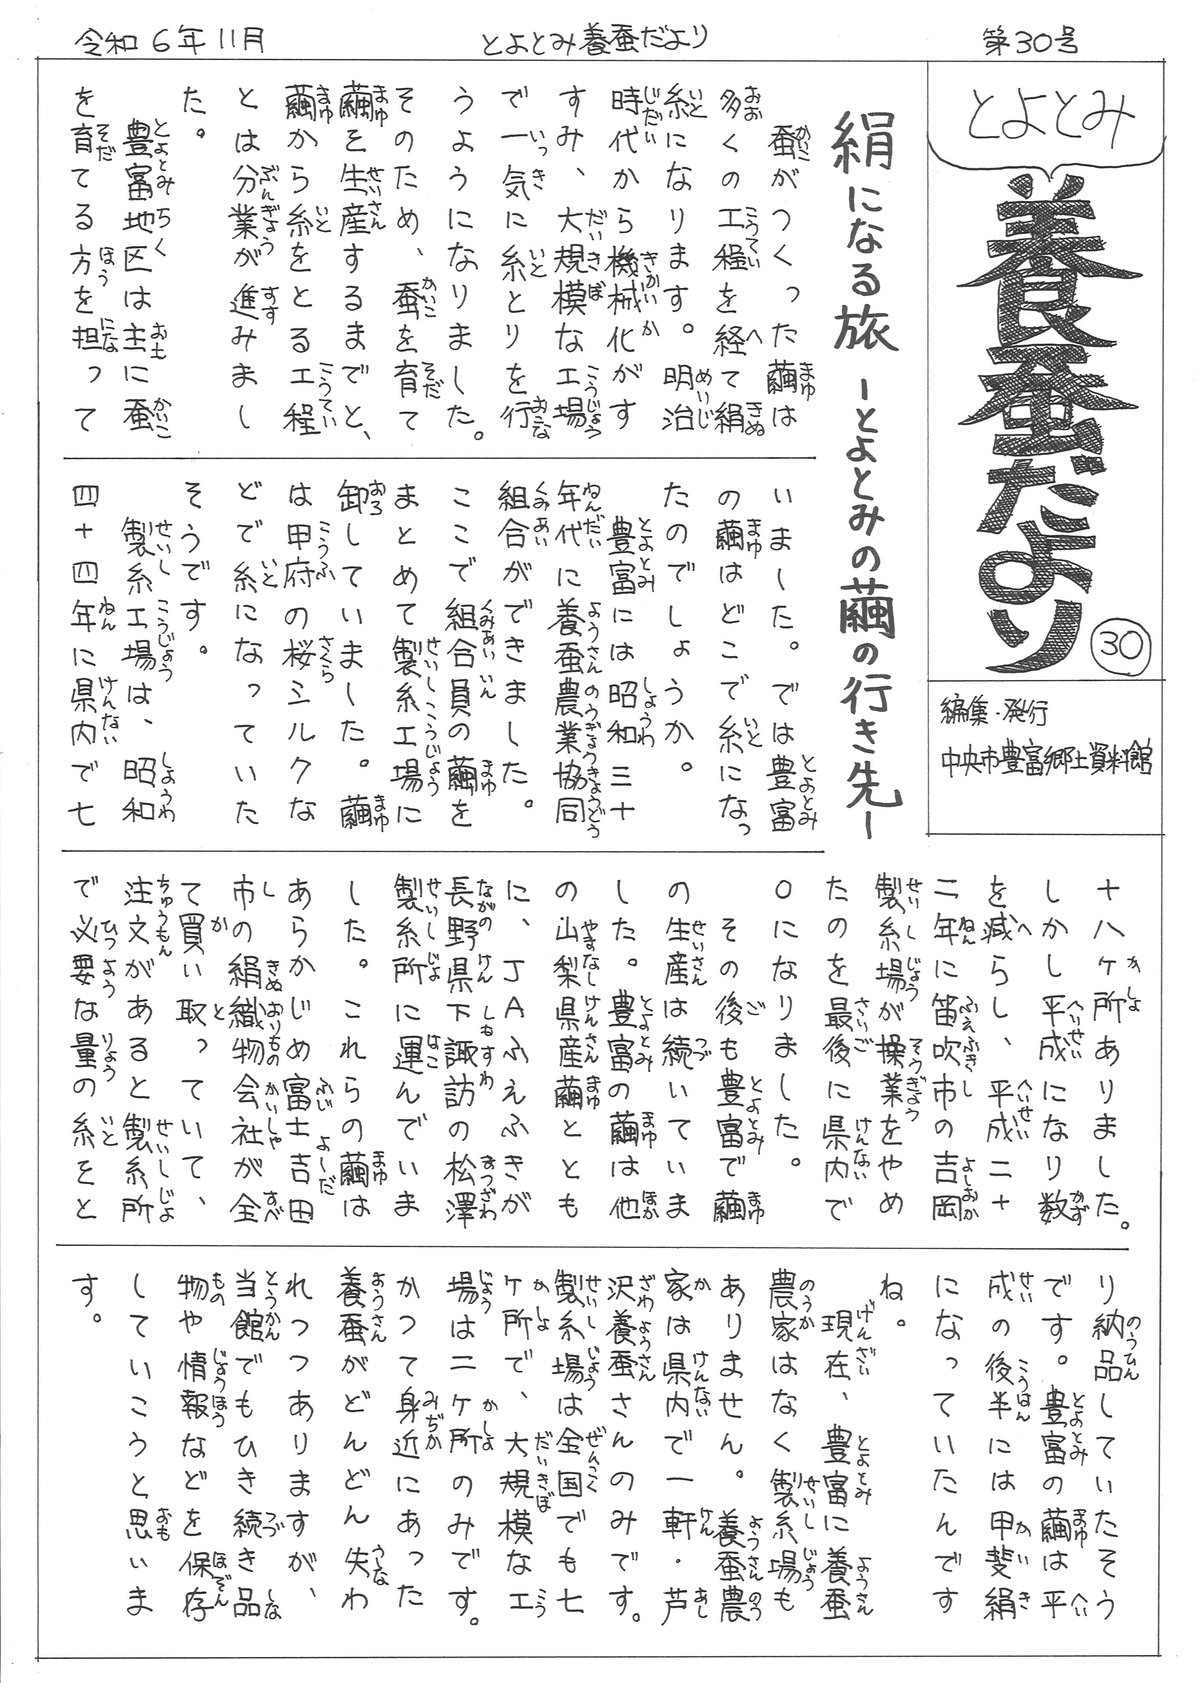 令和6年11月
とよとみ養蚕だより
第30号
とよとみ
養蚕だより
30
編集・発行
中央市豊富郷土資料館
絹になる旅 ーとよとみの繭の行き先ー
蚕がつくった繭は
多くの工程を経て絹
糸になります。明治
時代から機械化がす
すみ、大規模な工場
で一気に糸とりを行
うようになりました。
そのため、蚕を育て
繭を生産するまでと、
繭から糸をとる工程
とは分業が進みまし
た。
豊富地区は主に蚕
を育てる方を担って
いました。では豊富
の繭はどこで糸になっ
たのでしょうか。
豊富には昭和三十
年代に養蚕農業協同
組合ができました。
ここで組合員の繭を
まとめて製糸工場に
卸していました。繭
は甲府の桜シルクな
どで糸になっていた
そうです。
製糸工場は、昭和
四十四年に県内で七
十八ヶ所ありました。
しかし平成になり数
を減らし、平成二十
二年に笛吹市の吉岡
製糸場が操業をやめ
たのを最後に県内で
0になりました。
その後も豊富で繭
の生産は続いていま
した。豊富の繭は他
の山梨県産繭ととも
に、JAふえふきが
長野県下諏訪の松澤
製糸所に運んでいま
した。これらの繭は
あらかじめ富士吉田
市の絹織物会社が全
て買い取っていて、
注文があると製糸所
で必要な量の糸をと
り納品していたそう
です。豊富の繭は平
成の後半には甲斐絹
になっていたんです
ね。
現在、豊富に養蚕
農家はなく製糸場も
ありません。養蚕農
家は県内で一軒・芦
沢養蚕さんのみです。
製糸場は全国でも七
ヶ所で、大規模な工
場は二ヶ所のみです。
かつて身近にあった
養蚕がどんどん失わ
れつつありますが、
当館でもひき続き品
物や情報などを保存
していこうと思いま
す。